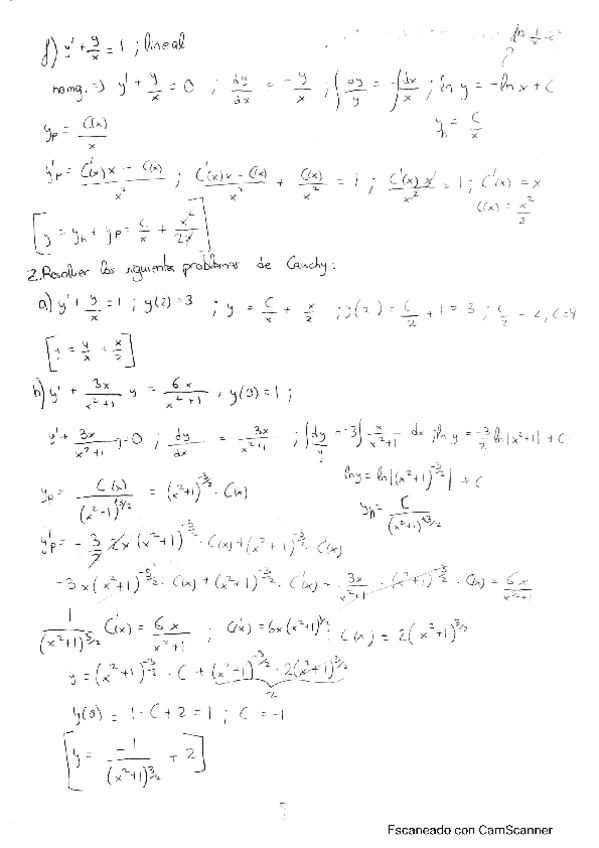 f) y' + y/x = 1 ; lineal
homg. => y' + y/x = 0 ; dy/dx = -y/x ; ∫ dy/y = -∫ dx/x ; ln y = -ln x + C
yp = C(x)/x
yh = C/x
y'p = (C'(x)x - C(x))/x² ; (C'(x)x - C(x))/x² + C(x)/x² = 1 ; C'(x)x/x² = 1 ; C'(x) = x
C(x) = x²/2
[y = yh + yp = C/x + x²/2x]
2. Resolver los siguientes problemas de Cauchy:
a) y' + y/x = 1 ; y(2) = 3 ; y = C/x + x/2 ; y(2) = C/2 + 1 = 3 ; C/2 = 2 ; C = 4
[y = 4/x + x/2]
b) y' + 3x/(x²+1) y = 6x/(x²+1) , y(0) = 1 ;
y' + 3x/(x²+1) y = 0 ; dy/dx = -3x/(x²+1) ; ∫ dy/y = -3 ∫ x/(x²+1) dx ; ln y = -3/2 ln|x²+1| + C
ln y = ln|(x²+1)^(-3/2)| + C
yp = C(x)/(x²-1)^(3/2) = (x²+1)^(-3/2) · C(x)
yh = C/(x²+1)^(3/2)
y'p = -3/2 2x (x²+1)^(-5/2) · C(x) + (x²+1)^(-3/2) · C'(x)
-3x (x²+1)^(-5/2) · C(x) + (x²+1)^(-3/2) · C'(x) - 3x/(x²+1) · (x²+1)^(-3/2) · C(x) = 6x/(x²+1)
1/(x²+1)^(3/2) C'(x) = 6x/(x²+1) ; C'(x) = 6x(x²+1)^(1/2) ; C(x) = 2(x²+1)^(3/2)
y = (x²+1)^(-3/2) · C + (x²+1)^(-3/2) · 2(x²+1)^(3/2)
2
y(0) = 1 · C + 2 = 1 ; C = -1
[y = -1/(x²+1)^(3/2) + 2]
Escaneado con CamScanner